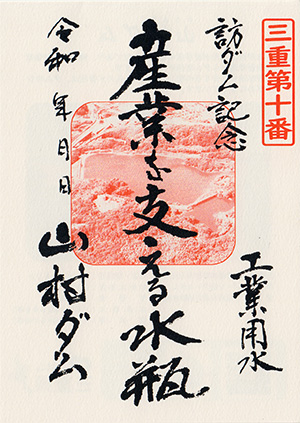 三重第十番
訪ダム記念
工業用水
産業を支える水瓶
令和 年 月 日 山村ダム